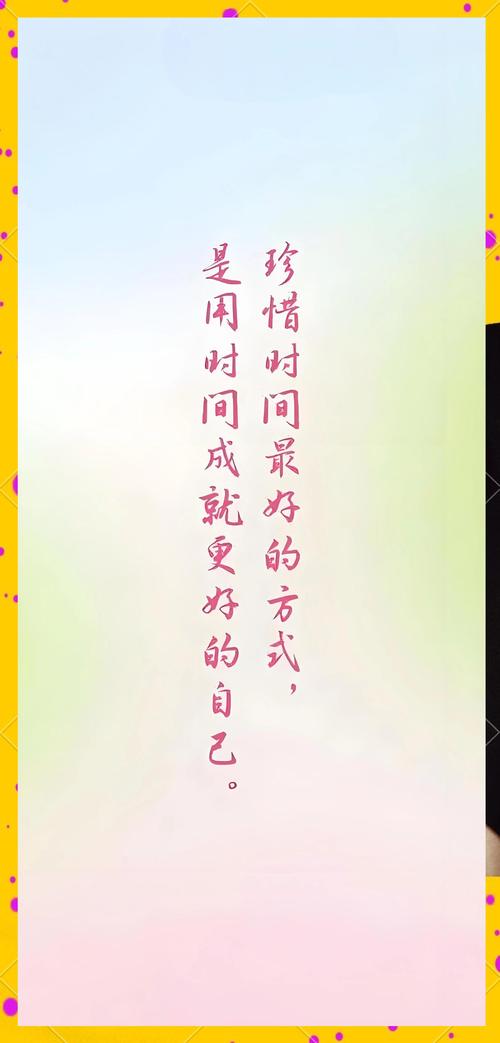 珍惜时间最好的方式，
是用时间成就更好的自己。